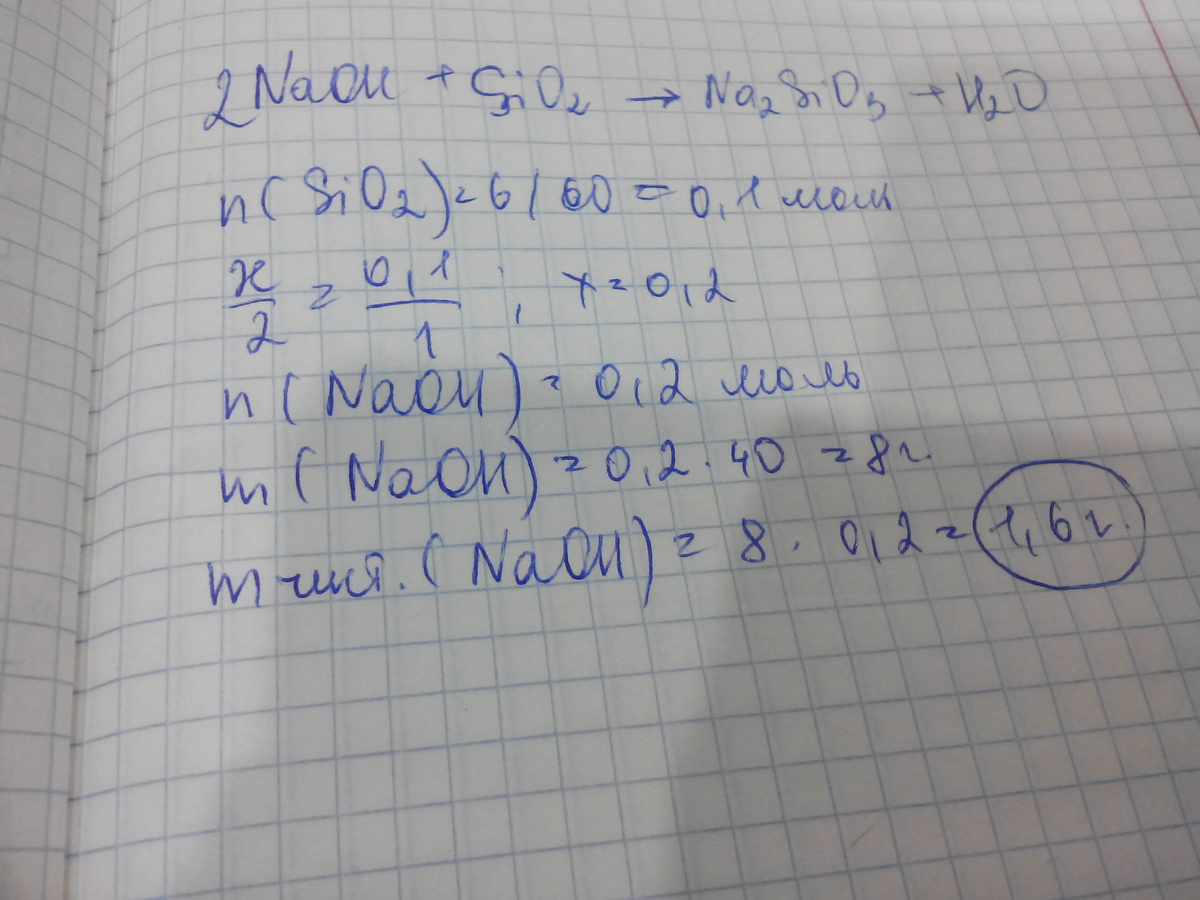 2NaOH + SiO₂ → Na₂SiO₃ + H₂O
n(SiO₂) = 6/60 = 0,1 моль
x/2 = 0,1/1 ; x = 0,2
n(NaOH) = 0,2 моль
m(NaOH) = 0,2 · 40 = 8 г.
m чист. (NaOH) = 8 · 0,2 = 1,6 г.